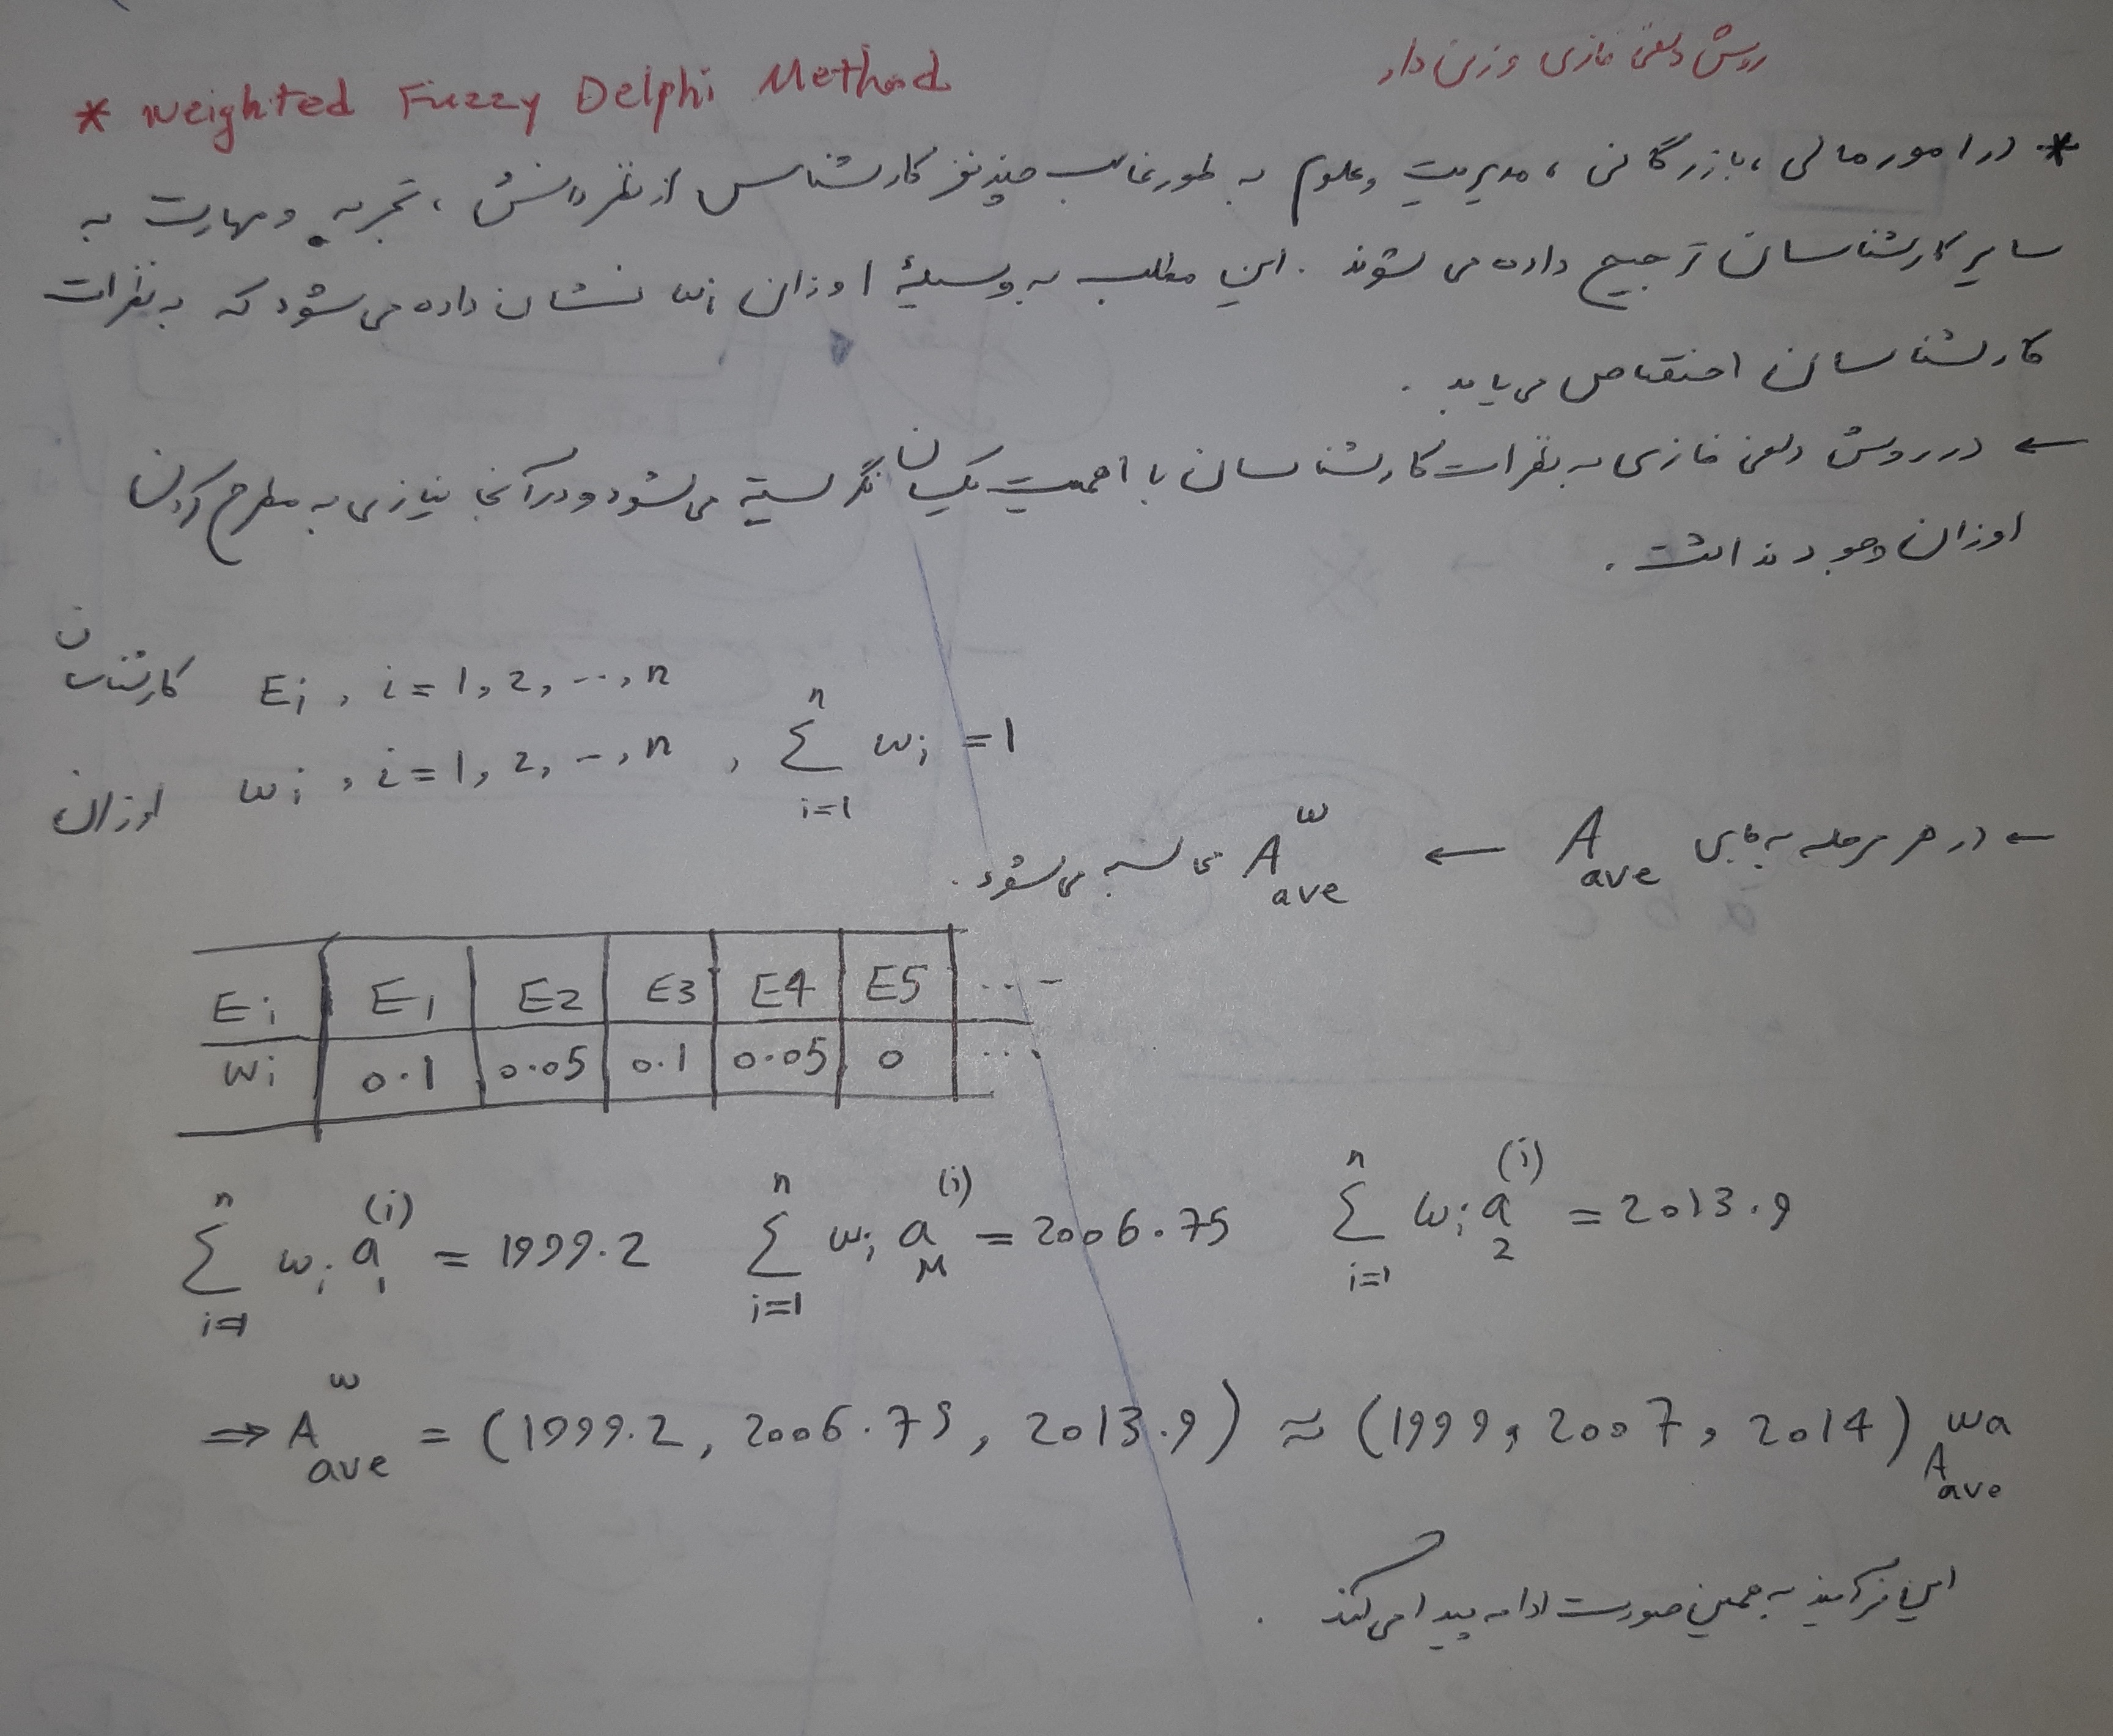 روش دلفی فازی وزن دار
* Weighted Fuzzy Delphi Method
* در امور مالی ، بازرگانی ، مدیریت و علوم به طور غالب چند نفر کارشناس از نظر دانش ، تجربه و مهارت به
سایر کارشناسان ترجیح داده می شوند . این مطلب به وسیلهٔ اوزان wi نشان داده می شود که به نظرات
کارشناسان اختصاص می یابد .
← در روش دلفی فازی به نظرات کارشناسان با اهمیت یکسان نگریسته می شود و در آنجا نیازی به مطرح کردن
اوزان وجود نداشت .
کارشناسان Ei , i = 1, 2, ..., n
اوزان wi , i = 1, 2, ..., n , Σ_{i=1}^{n} wi = 1
← در هر مرحله به جای A_ave ← A^w_ave محاسبه می شود .
Ei | E1 | E2 | E3 | E4 | E5 | ...
wi | 0.1 | 0.05 | 0.1 | 0.05 | 0 | ...
Σ_{i=1}^{n} wi a_1^(i) = 1999.2 Σ_{i=1}^{n} wi a_M^(i) = 2006.75 Σ_{i=1}^{n} wi a_2^(i) = 2013.9
⇒ A^w_ave = (1999.2, 2006.75, 2013.9) ≈ (1999, 2007, 2014) A^wa_ave
این فرآیند به همین صورت ادامه پیدا می کند .